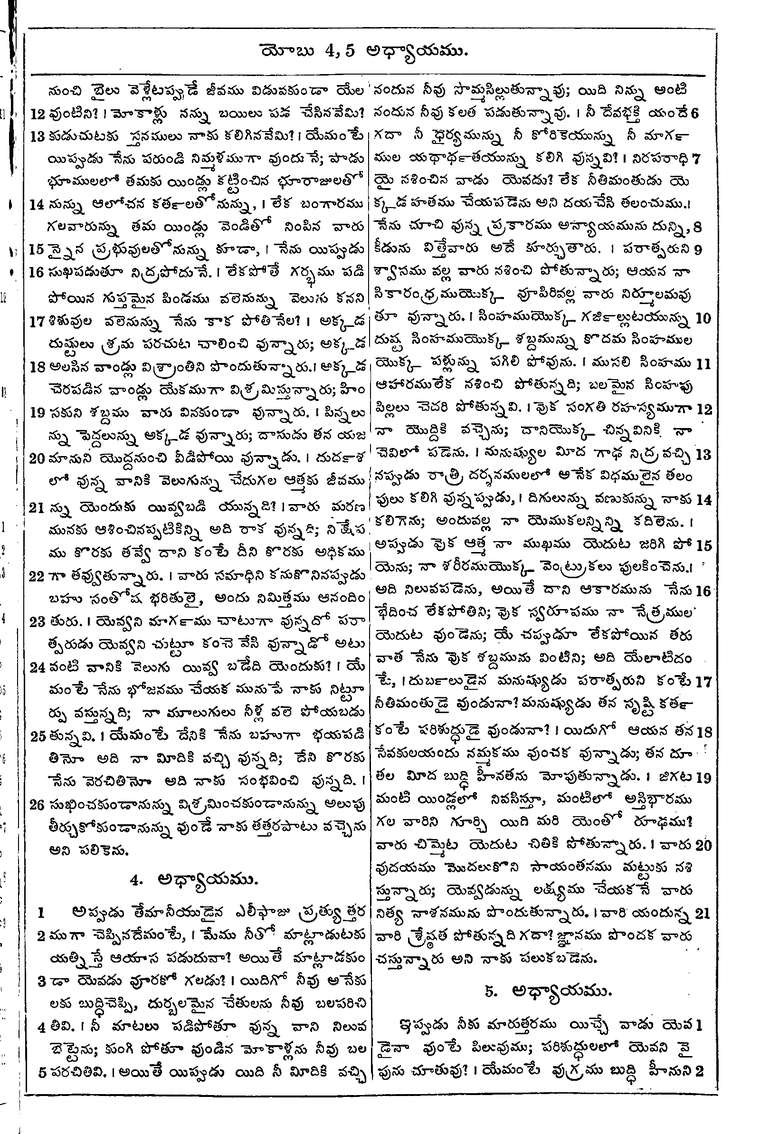 యోబు 4, 5 అధ్యాయము.
నుంచి బైలు వెళ్లేటప్పుడే జీవము విడువకుండా యేల
12 వుంటిని? । మోకాళ్లు నన్ను బయిలు పడ చేసినవేమి?
13 కుడుచుటకు స్తనములు నాకు కలిగినవేమి? । యేమంటే
యిప్పుడు నేను పరుండి నిమ్మళముగా వుందునే; పాడు
భూములలో తమకు యిండ్లు కట్టించిన భూరాజులతో
14 నున్ను ఆలోచన కర్తలతోనున్ను, । లేక బంగారము
గలవారున్ను తమ యిండ్లు వెండితో నింపిన వారు
15 న్నైన ప్రభువులతోనున్ను కూడా, । నేను యిప్పుడు
16 సుఖపడుతూ నిద్రపోదునే. । లేకపోతే గర్భము పడి
పోయిన గుప్తమైన పిండము వలెనున్ను వెలుగు కనని
17 శిశువుల వలెనున్ను నేను కాక పోతినేల? । అక్కడ
దుష్టులు శ్రమ పరచుట చాలించి వున్నారు; అక్కడ
18 అలసిన వాండ్లు విశ్రాంతిని పొందుతున్నారు.। అక్కడ
చెరపడిన వాండ్లు యేకముగా విశ్రమిస్తున్నారు; హిం
19 సకుని శబ్దము వారు వినకుండా వున్నారు. । పిన్నలు
న్ను పెద్దలున్ను అక్కడ వున్నారు; దాసుడు తన యజ
20 మానుని యొద్దనుంచి వీడిపోయి వున్నాడు. । దుర్దశ
లో వున్న వానికి వెలుగున్ను చేదుగల ఆత్మకు జీవము
21 న్ను యెందుకు యివ్వబడి యున్నది? । వారు మరణ
మునకు ఆశించినప్పటికిన్ని అది రాక వున్నది; నిక్షేప
ము కొరకు తవ్వే దాని కంటే దీని కొరకు అధికము
22 గా తవ్వుతున్నారు. । వారు సమాధిని కనుకొనినప్పుడు
బహు సంతోష భరితులై, అందు నిమిత్తము ఆనందిం
23 తురు. । యెవ్వని మార్గము చాటుగా వున్నదో పరా
త్పరుడు యెవ్వని చుట్టూ కంచె వేసి వున్నాడో అటు
24 వంటి వానికి వెలుగు యివ్వ బడేది యెందుకు? । యే
మంటే నేను భోజనము చేయక మునుపే నాకు నిట్టూ
ర్పు వస్తున్నది; నా మూలుగులు నీళ్ల వలె పోయబడు
25 తున్నవి. । యేమంటే దేనికి నేను బహుగా భయపడి
తినో అది నా మీదికి వచ్చి వున్నది; దేని కొరకు
నేను వెరచితినో అది నాకు సంభవించి వున్నది. ।
26 సుఖించకుండానున్ను విశ్రమించకుండానున్ను అలుపు
తీర్చుకోకుండానున్ను వుండే నాకు తత్తరపాటు వచ్చెను
అని పలికెను.
4. అధ్యాయము.
1 అప్పుడు తేమానీయుడైన ఎలీఫాజు ప్రత్యుత్తర
2 ముగా చెప్పినదేమంటే, । మేము నీతో మాట్లాడుటకు
యత్నిస్తే ఆయాస పడుదువా? అయితే మాట్లాడకుం
3 డా యెవడు వూరకో గలడు? । యిదిగో నీవు అనేకు
లకు బుద్ధిచెప్పి, దుర్బలమైన చేతులను నీవు బలపరిచి
4 తివి. । నీ మాటలు పడిపోతూ వున్న వాని నిలువ
బెట్టెను; కుంగి పోతూ వుండిన మోకాళ్లను నీవు బల
5 పరచితివి. । అయితే యిప్పుడు యిది నీ మీదికి వచ్చి
నందున నీవు సొమ్మసిల్లుతున్నావు; యిది నిన్ను అంటి
నందున నీవు కలత పడుతున్నావు. । నీ దేవభక్తి యందే 6
గదా నీ ధైర్యమున్ను నీ కోరికెయున్ను నీ మార్గ
ముల యథార్థతయున్ను కలిగి వున్నవి? । నిరపరాధి 7
యై నశించిన వాడు యెవడు? లేక నీతిమంతుడు యె
క్కడ హతము చేయపడెను అని దయచేసి తలంచుము.।
నేను చూచి వున్న ప్రకారము అన్యాయమును దున్ని, 8
కీడును విత్తేవారు అదే కూర్చుతారు. । పరాత్పరుని 9
శ్వాసము వల్ల వారు నశించి పోతున్నారు; ఆయన నా
సికారంధ్రముయొక్క వూపిరివల్ల వారు నిర్మూలమవు
తూ వున్నారు. । సింహముయొక్క గర్జిల్లుటయున్ను 10
దుష్ట సింహముయొక్క శబ్దమున్ను కొదమ సింహముల
యొక్క పళ్లున్ను పగిలి పోవును. । ముసలి సింహము 11
ఆహారములేక నశించి పోతున్నది; బలమైన సింహపు
పిల్లలు చెదరి పోతున్నవి. । వొక సంగతి రహస్యముగా 12
నా యొద్దికి వచ్చెను; దానియొక్క చిన్నవినికి నా
చెవిలో పడెను. । మనుష్యుల మీద గాఢ నిద్ర వచ్చి 13
నప్పుడు రాత్రి దర్శనములలో అనేక విధములైన తలం
పులు కలిగి వున్నప్పుడు, । దిగులున్ను వణుకున్ను నాకు 14
కలిగెను; అందువల్ల నా యెముకలన్నిన్ని కదిలెను. ।
అప్పుడు వొక ఆత్మ నా ముఖము యెదుట జరిగి పో 15
యెను; నా శరీరముయొక్క వెంట్రుకలు పులకించెను.।
అది నిలువపడెను, అయితే దాని ఆకారమును నేను 16
భేదించ లేకపోతిని; వొక స్వరూపము నా నేత్రముల
యెదుట వుండెను; యే చప్పుడూ లేకపోయిన తరు
వాత నేను వొక శబ్దమును వింటిని; అది యేలాటిదం
టే, । దుర్బలుడైన మనుష్యుడు పరాత్పరుని కంటే 17
నీతిమంతుడై వుండునా? మనుష్యుడు తన సృష్టి కర్త
కంటే పరిశుద్ధుడై వుండునా? । యిదుగో ఆయన తన 18
సేవకులయందు నమ్మకము వుంచక వున్నాడు; తన దూ
తల మీద బుద్ధి హీనతను మోపుతున్నాడు. । జిగట 19
మంటి యిండ్లలో నివసిస్తూ, మంటిలో అస్తిభారము
గల వారిని గూర్చి యిది మరి యెంతో రూఢము?
వారు చిమ్మెట యెదుట చితికి పోతున్నారు. । వారు 20
వుదయము మొదలుకొని సాయంతనము మట్టుకు నశి
స్తున్నారు; యెవ్వడున్ను లక్ష్యము చేయకనే వారు
నిత్య నాశనమును పొందుతున్నారు. । వారి యందున్న 21
వారి శ్రేష్ఠత పోతున్నది గదా? జ్ఞానము పొందక వారు
చస్తున్నారు అని నాకు పలుకబడెను.
5. అధ్యాయము.
ఇప్పుడు నీకు మారుత్తరము యిచ్చే వాడు యెవ 1
డైనా వుంటే పిలువుము; పరిశుద్ధులలో యెవని వై
పును చూతువు? । యేమంటే వుగ్రము బుద్ధి హీనుని 2